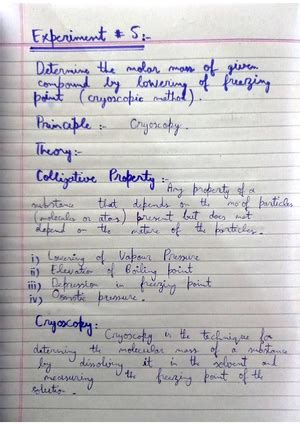 Experiment # 5:-
Determine the molar mass of given
compound by lowering of freezing
point (cryoscopic method).
Principle :- Cryoscopy.
Theory:-
Colligative Property :-
Any property of a
substance that depends on the no of particles
(molecules or atoms) present but does not
depend on the nature of the particles.
i) Lowering of Vapour Pressure
ii) Elevation of Boiling point
iii) Depression in freezing point
iv) Osmotic pressure.
Cryoscopy:
Cryoscopy is the technique for
determing the molecular mass of a substance
by dissolving it in the solvent and
measuring the freezing point of the
solution.